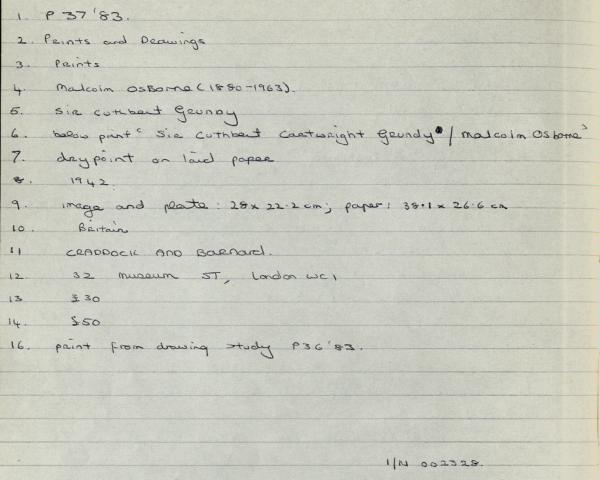 1. P 37 '83.
2. Prints and Drawings
3. Prints
4. Malcolm Osborne (1880-1963).
5. Sir Cuthbert Grundy
6. below print ' Sir Cuthbert Cartwright Grundy / Malcolm Osborne '
7. drypoint on laid paper
8. 1942.
9. image and plate : 28 x 22.2 cm; paper: 38.1 x 26.6 cm
10. Britain
11 CRADDOCK AND BARNARD.
12. 32 Museum ST, London WC1
13 £30
14. £50
16. print from drawing study P36 '83.
I/N 002328.